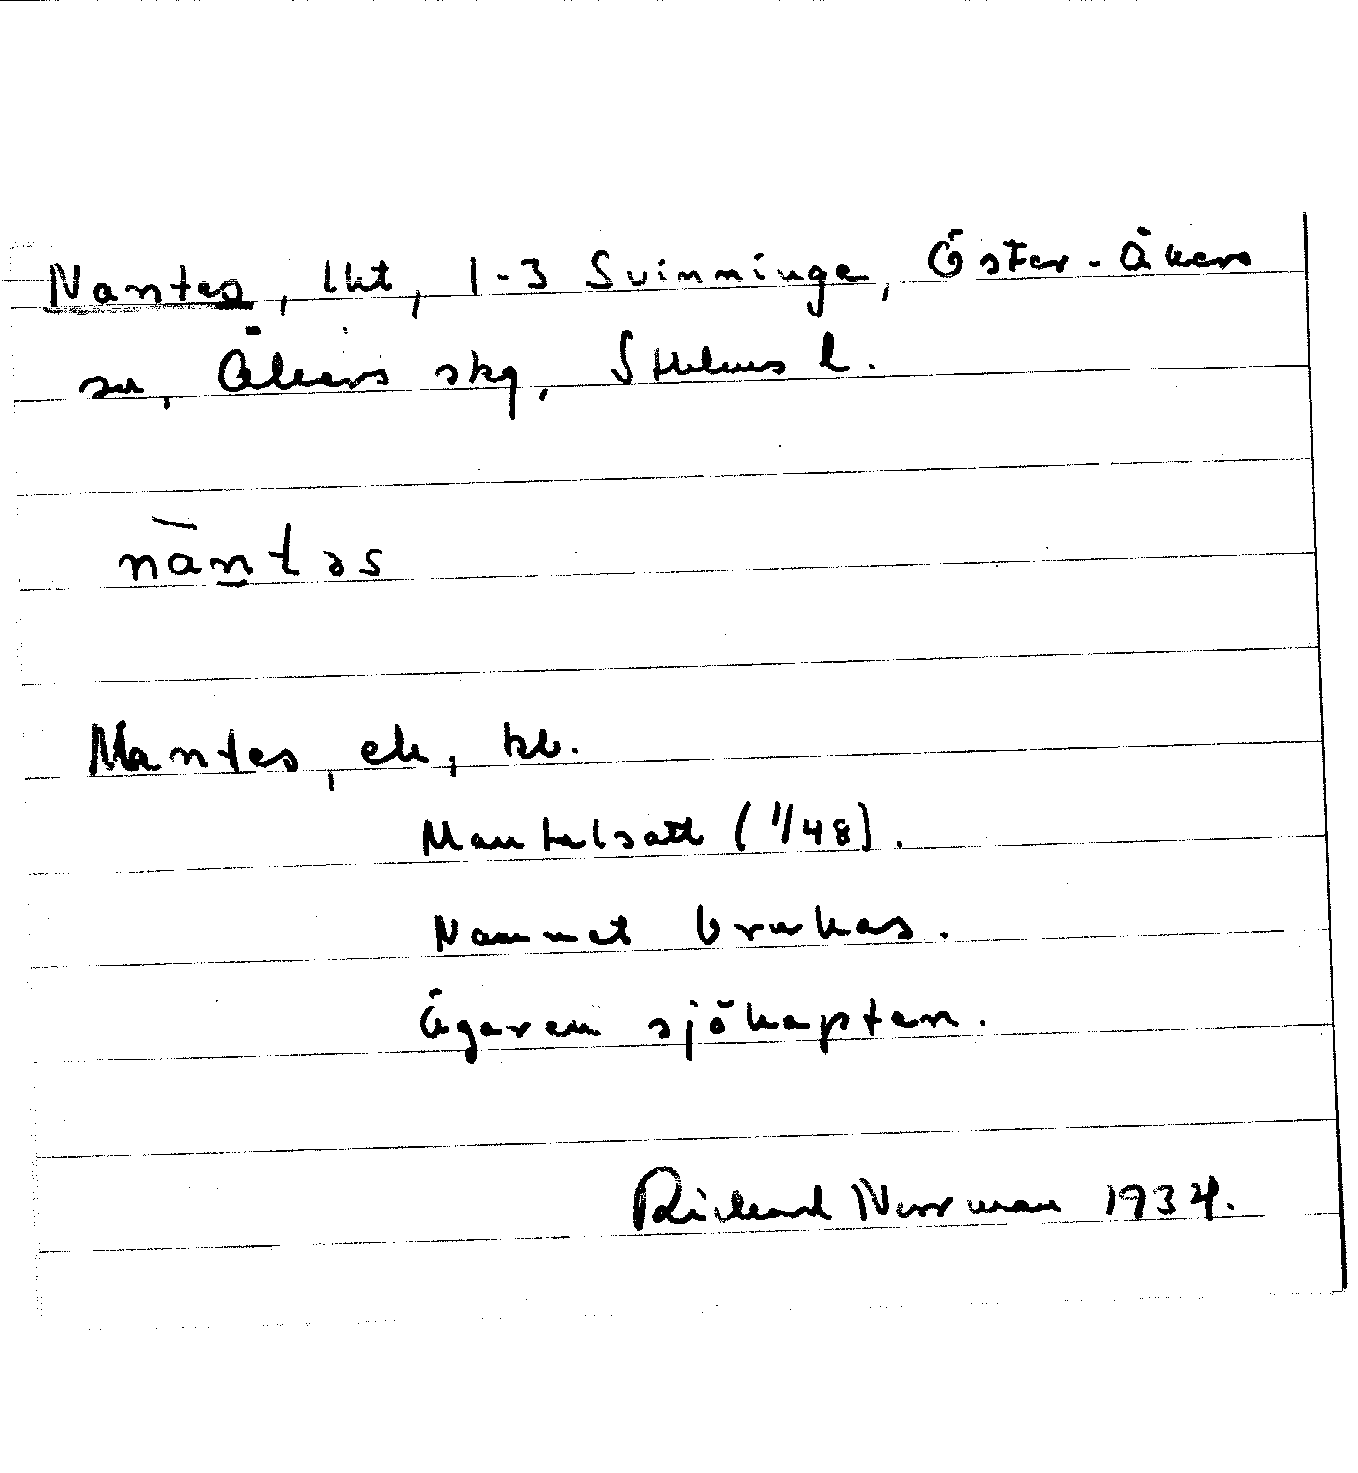 Nantes, lht, 1-3 Svinninge, Öster-Åkers
sn, Åkers skg, Sthlms l.
nàntəs
Nantes, ek, kb.
Mantalsatt (1/48).
Namnet brukas.
Ägaren sjökapten.
Richard Norrman 1934.